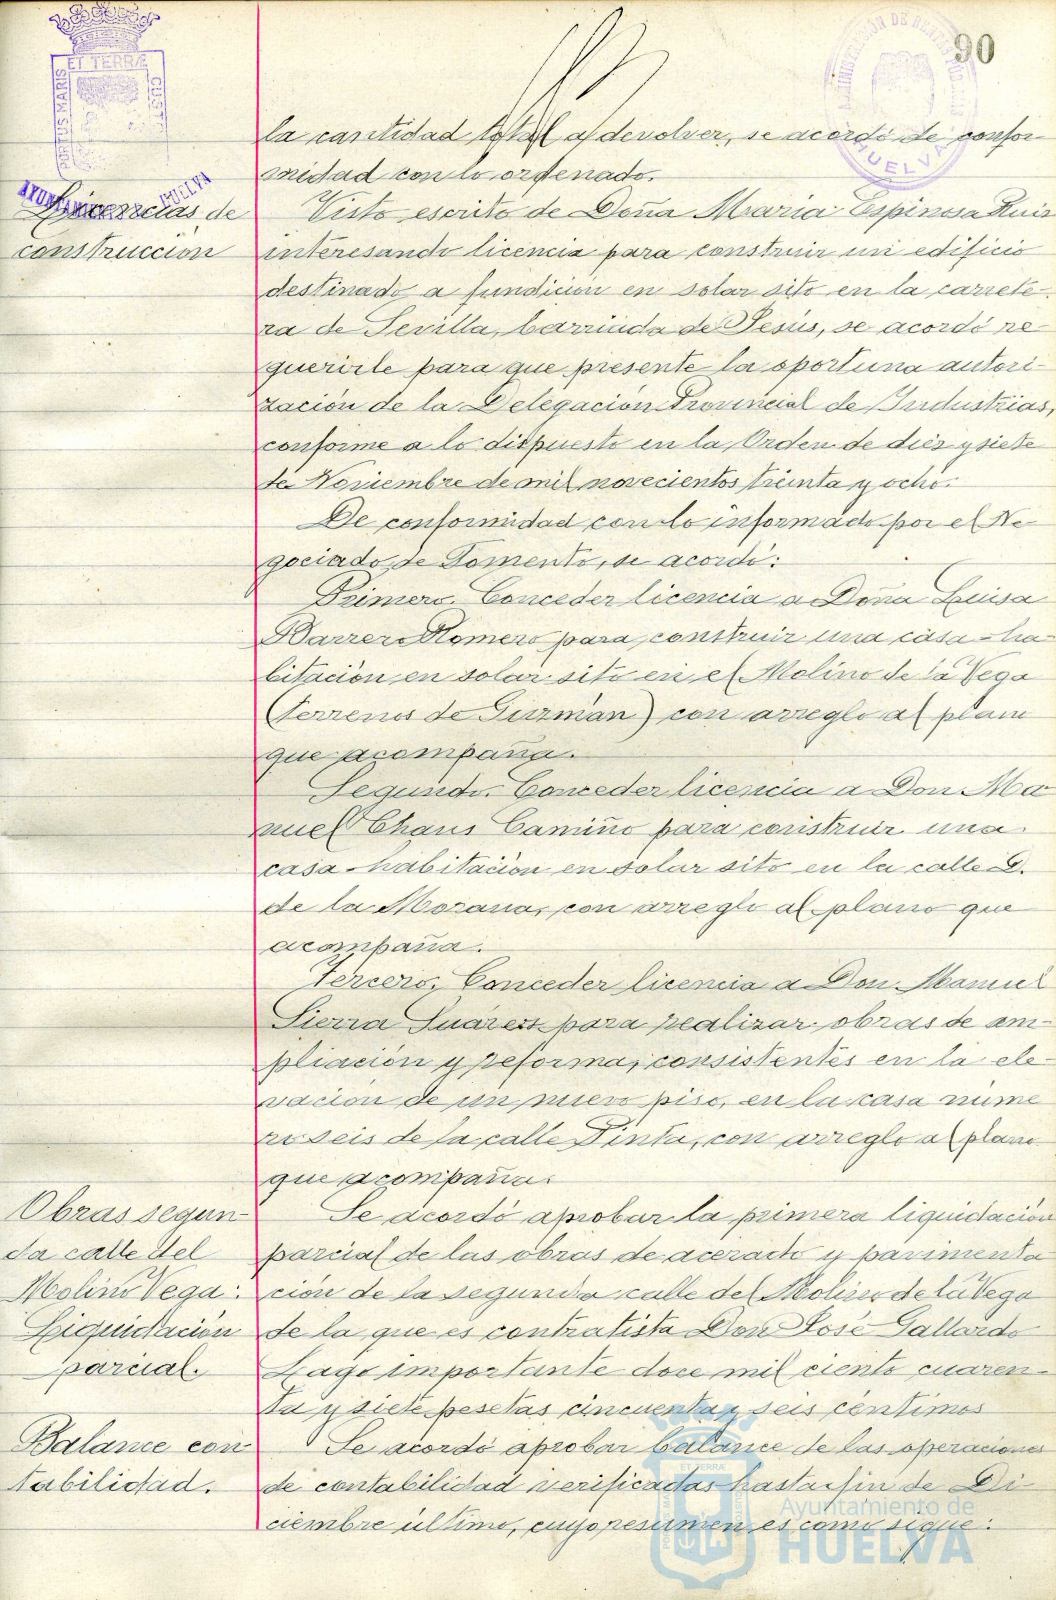 90
PORTUS MARIS
ET TERRÆ
CUST
AYUNTAMIENTO HUELVA
ADMINISTRACIÓN DE RENTAS PÚBLICAS
HUELVA
la cantidad total a devolver, se acordó de confor-
midad con lo ordenado.
Licencias de
construcción
Visto escrito de Doña Maria Espinosa Ruiz
interesando licencia para construir un edificio
destinado a fundición en solar sito en la carrete-
ra de Sevilla, barriada de Jesús, se acordó re-
querirle para que presente la oportuna autori-
zación de la Delegación Provincial de Industrias,
conforme a lo dispuesto en la Orden de diez y siete
de Noviembre de mil novecientos treinta y ocho.
De conformidad con lo informado por el Ne-
gociado de Fomento, se acordó:
Primero. Conceder licencia a Doña Luisa
Barrero Romero para construir una casa-ha-
bitación en solar sito en el Molino de la Vega
(Terrenos de Guzmán) con arreglo al plano
que acompaña.
Segundo. Conceder licencia a Don Ma-
nuel Chans Camiño para construir una
casa-habitación en solar sito en la calle G.
de la Morana, con arreglo al plano que
acompaña.
Tercero. Conceder licencia a Don Manuel
Sierra Suárez para realizar obras de am-
pliación y reforma, consistentes en la ele-
vación de un nuevo piso, en la casa núme
ro seis de la calle Pinta, con arreglo al plano
que acompaña.
Obras segun-
da calle del
Molino Vega:
Liquidación
parcial.
Se acordó aprobar la primera liquidación
parcial de las obras de acerado y pavimenta
ción de la segunda calle del Molino de la Vega
de la que es contratista Don José Gallardo
Lago importante doce mil ciento cuaren-
ta y siete pesetas cincuenta y seis céntimos
Balance con
tabilidad.
Se acordó aprobar balance de las operaciones
de contabilidad verificadas hasta fin de Di-
ciembre último, cuyo resumen es como sigue:
Ayuntamiento de
HUELVA